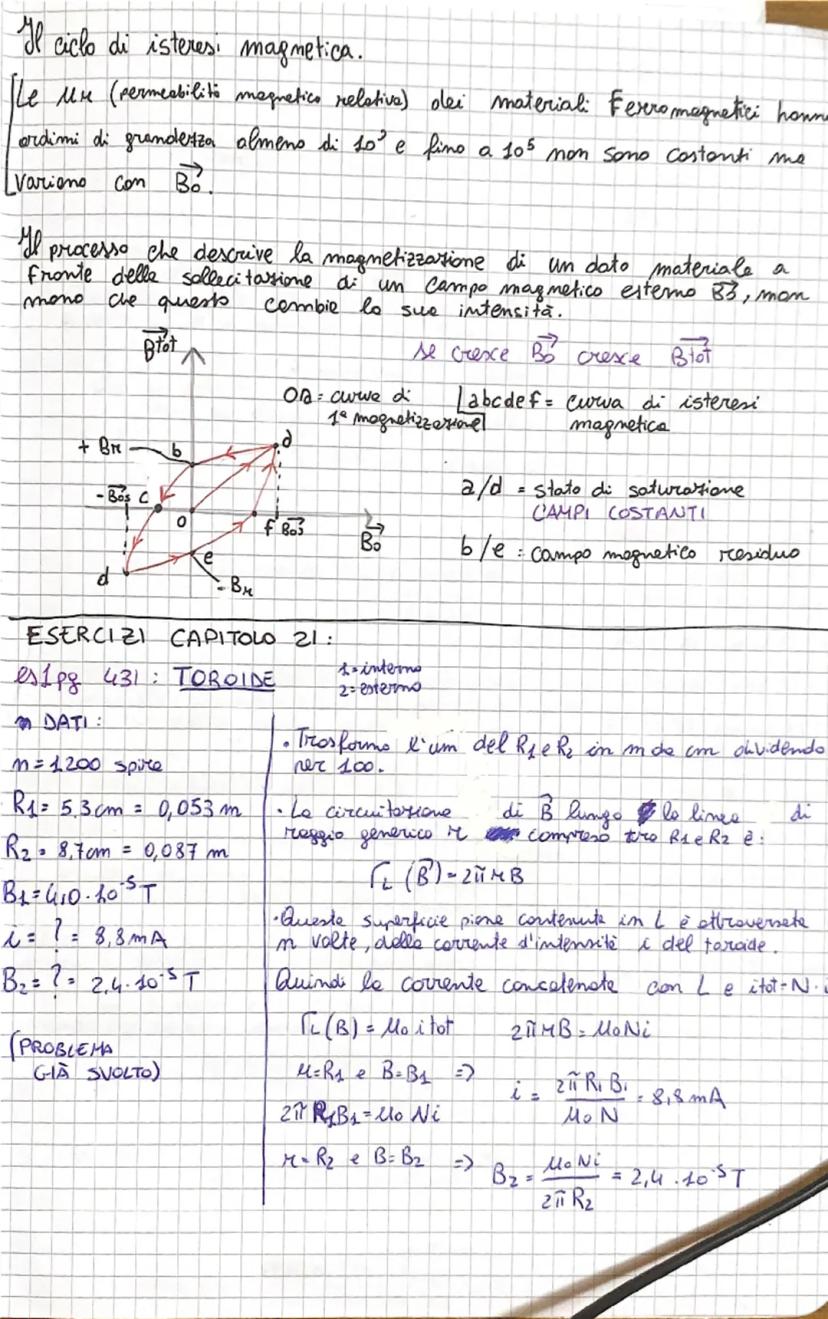 Il ciclo di isteresi magnetica.
Le μr (permeabilità magnetica relativa) dei materiali Ferromagnetici hanno
ordini di grandezza almeno di 10³ e fino a 10⁵ non sono costanti ma
variano con B₀.
Il processo che descrive la magnetizzazione di un dato materiale a
fronte della sollecitazione di un campo magnetico esterno B⃗₀, man
mano che questo cambia la sua intensità.
B⃗tot
se cresce B⃗₀ cresce B⃗tot
OA = curva di
1ª magnetizzazione
abcdef = curva di isteresi
magnetica
+ Br
b
d
-B⃗os
c
o
f
B⃗os
B⃗₀
a/d = stato di saturazione
CAMPI COSTANTI
b/e = campo magnetico residuo
e
d
- Br
ESERCIZI CAPITOLO 21:
es1pg 431: TOROIDE
1=interno
2=esterno
DATI:
n=1200 spire
R1= 5,3cm = 0,053 m
R2= 8,7cm = 0,087 m
B1=4,0·10⁻⁵T
i= ? = 8,8mA
B2= ? = 2,4·10⁻⁵T
(PROBLEMA
GIÀ SVOLTO)
• Trasformo l'um del R1 e R2 in m da cm dividendo
per 100.
• La circuitazione di B⃗ lungo la linea di
raggio generico r compreso tra R1 e R2 è:
ΓL (B⃗)=2πrB
• Questa superficie piana contenuta in L è attraversata
n volte, dalla corrente d'intensità i del toroide.
Quindi la corrente concatenata con L e itot=N·i
ΓL(B) = μ₀ itot   2πrB=μ₀Ni
r=R1 e B=B1 =>
2πR1B1=μ₀ Ni
i = 2πR1B1 / μ₀N = 8,8mA
r=R2 e B=B2 => B2 = μ₀Ni / 2πR2 = 2,4·10⁻⁵T